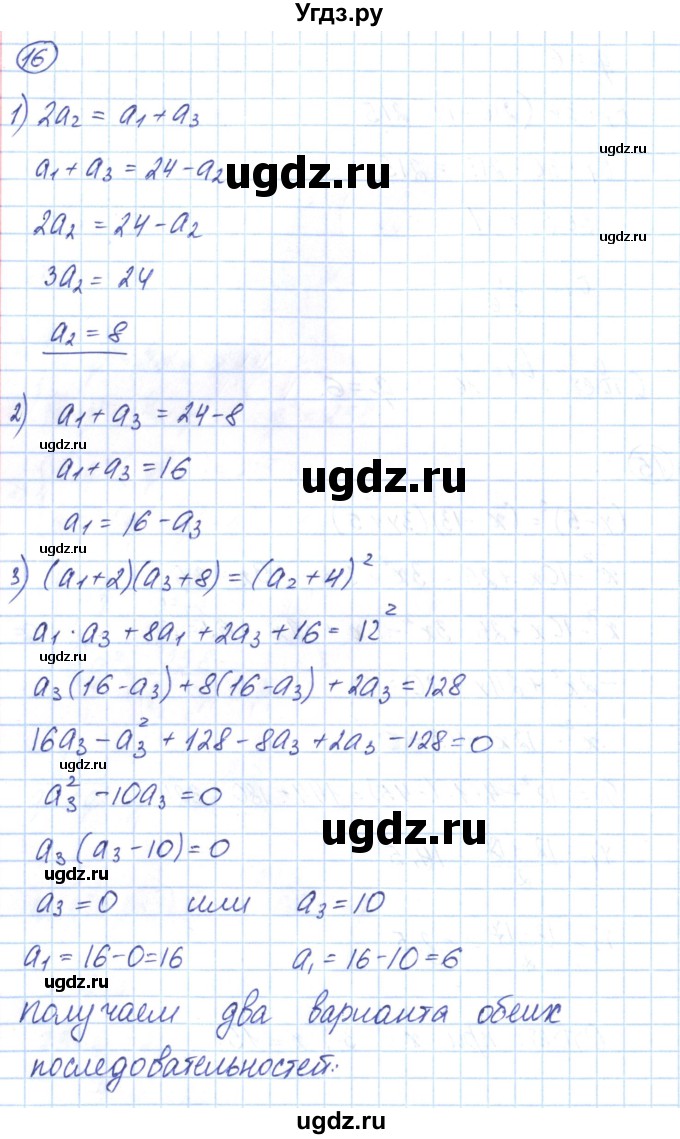 Угдз.ру
16
1) 2a₂ = a₁ + a₃
ugdz.ru
a₁ + a₃ = 24 - a₂
ugdz.ru
2a₂ = 24 - a₂
ugdz.ru
3a₂ = 24
a₂ = 8
2) a₁ + a₃ = 24 - 8
ugdz.ru
a₁ + a₃ = 16
ugdz.ru
a₁ = 16 - a₃
ugdz.ru
3) (a₁ + 2)(a₃ + 8) = (a₂ + 4)²
a₁ · a₃ + 8a₁ + 2a₃ + 16 = 12²
ugdz.ru
a₃(16 - a₃) + 8(16 - a₃) + 2a₃ = 128
16a₃ - a₃² + 128 - 8a₃ + 2a₃ - 128 = 0
ugdz.ru
a₃² - 10a₃ = 0
ugdz.ru
a₃(a₃ - 10) = 0
ugdz.ru
a₃ = 0 или a₃ = 10
a₁ = 16 - 0 = 16 a₁ = 16 - 10 = 6
ugdz.ru
получаем два варианта обеих
последовательностей:
ugdz.ru